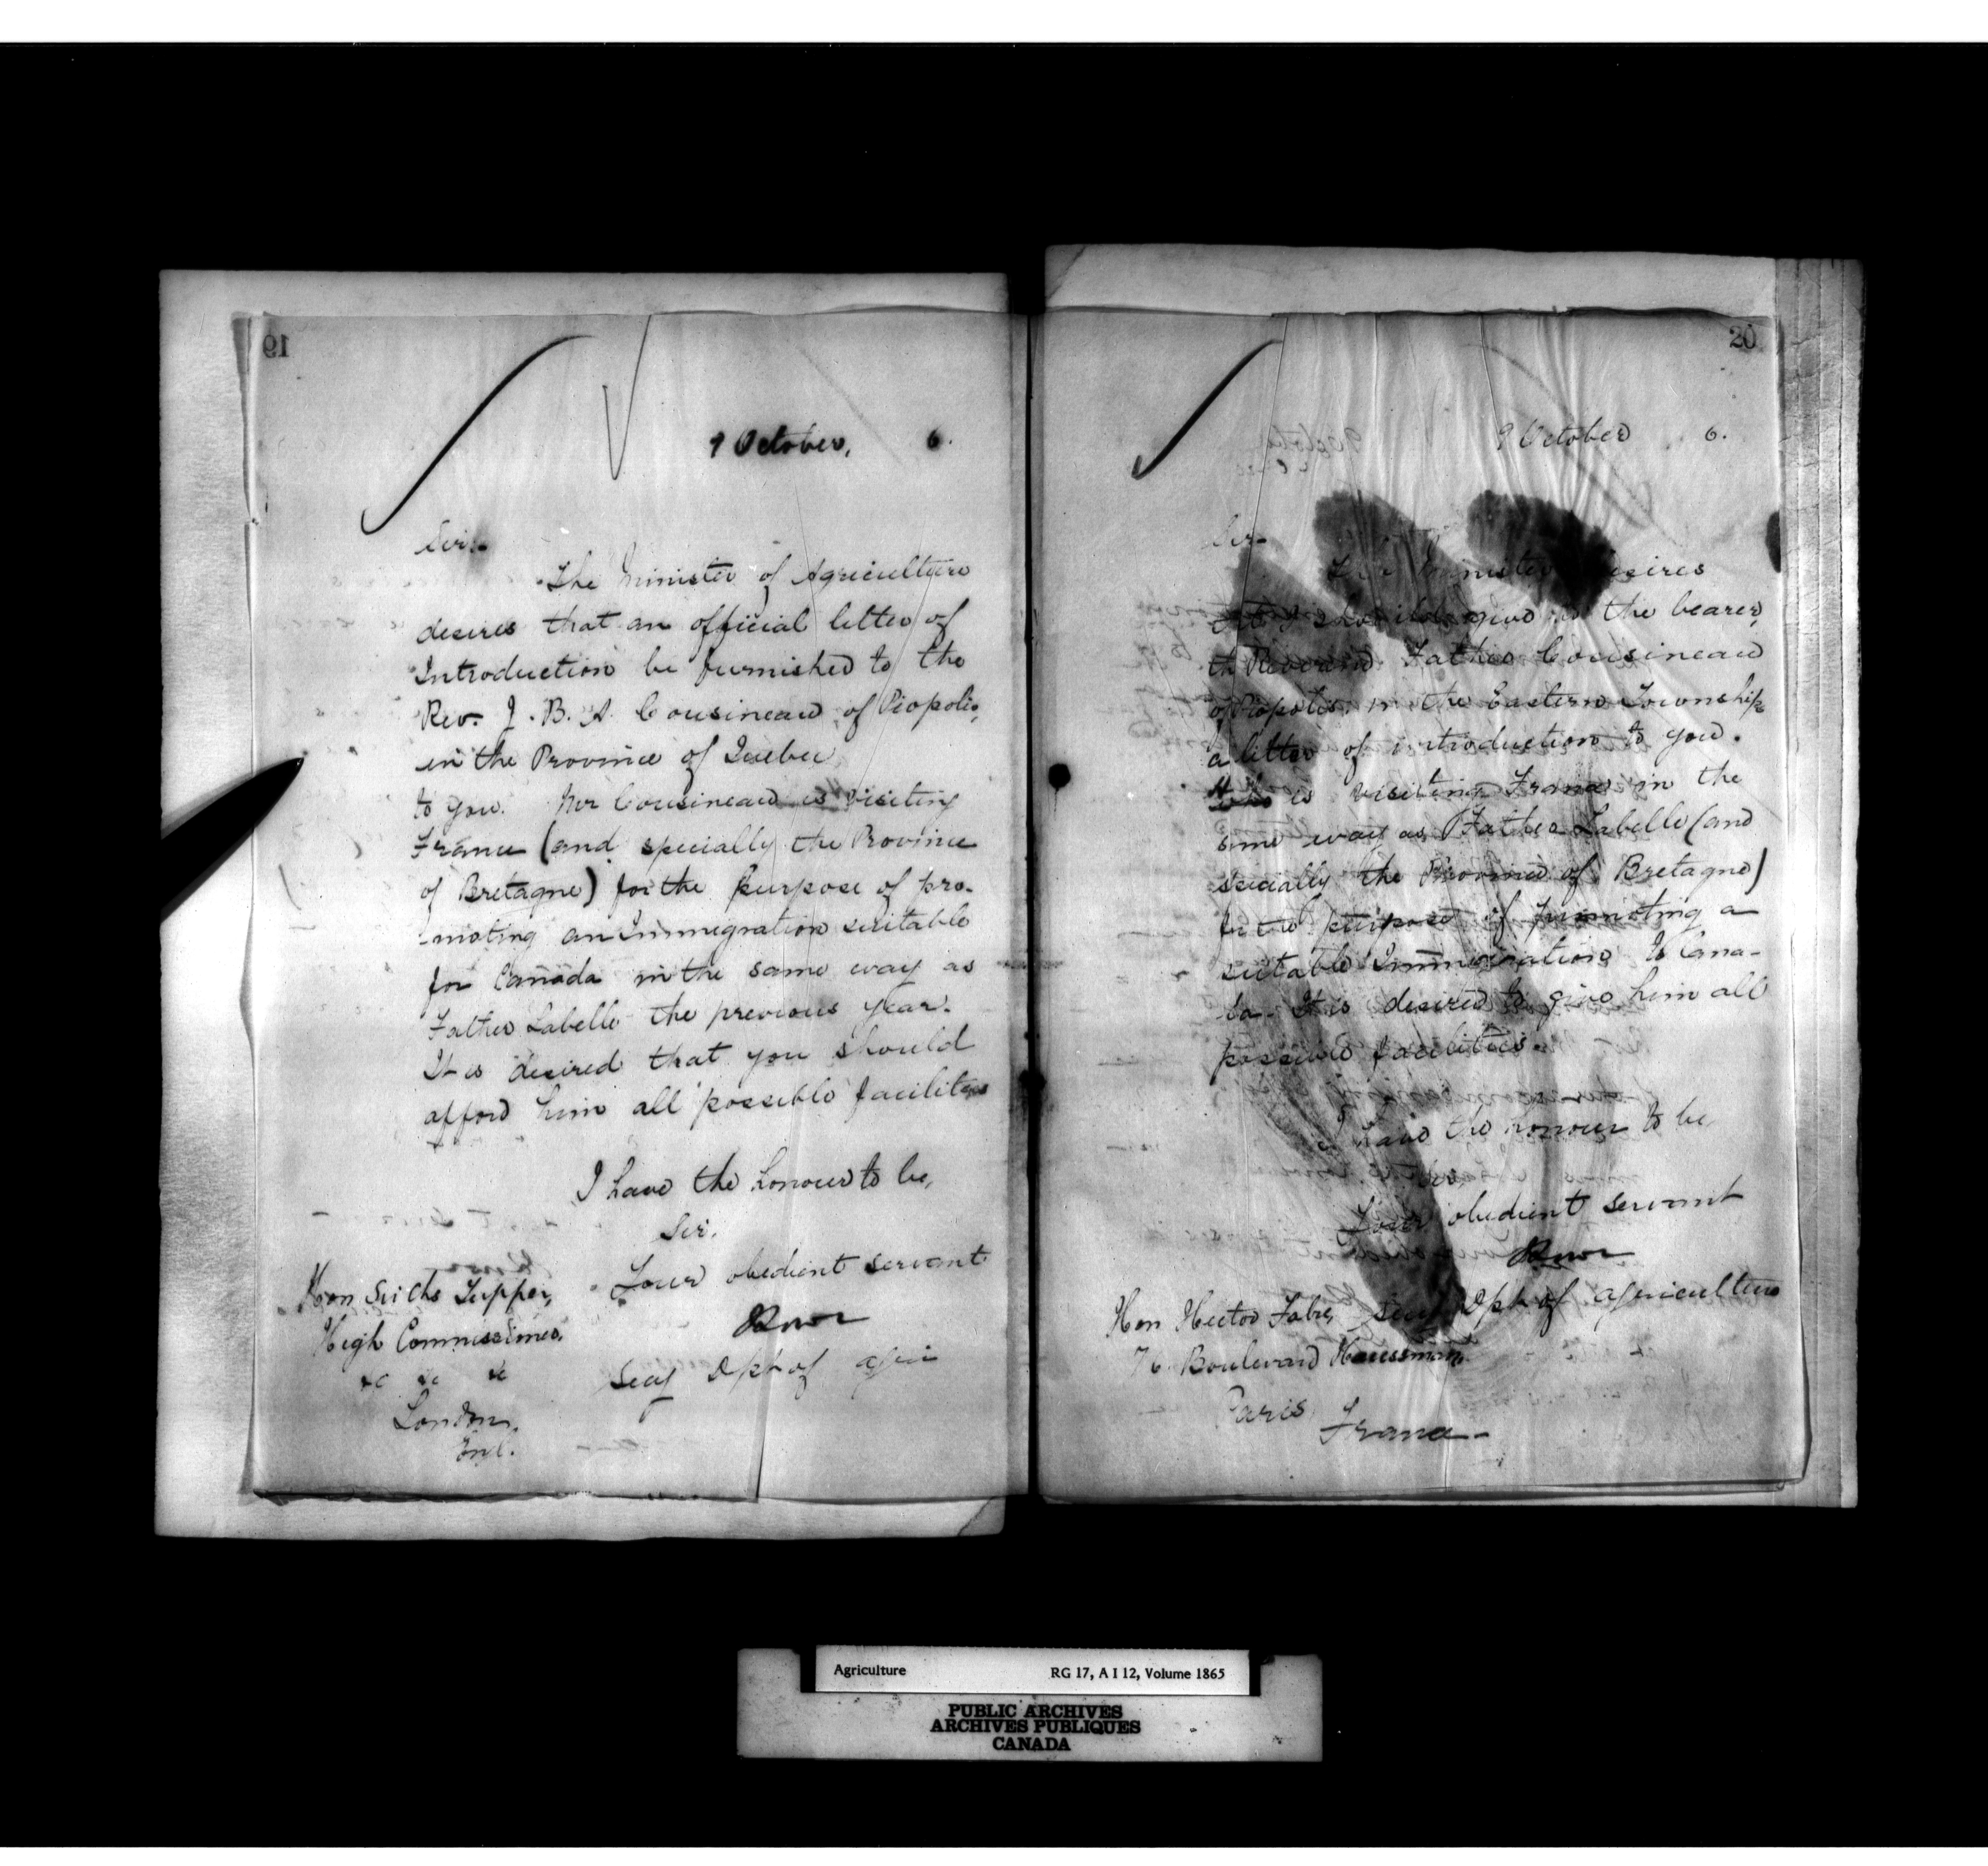 19
9 October, 6.
Sir,
The Minister of Agriculture
desires that an official letter of
Introduction be furnished to the
Rev. J. B. A. Cousineau of Piopolis,
in the Province of Quebec
to you. Mr Cousineau is visiting
France (and specially the Province
of Bretagne) for the purpose of pro-
moting an Immigration suitable
for Canada in the same way as
Father Labelle the previous year.
It is desired that you should
afford him all possible facilities
I have the honour to be,
Sir,
Your obedient servant
Secy Dpt of Agri
Hon Sir Chs Tupper,
High Commissioner,
&c &c &c
London,
Eng.
20
9 October 6.
Sir-
The Minister desires
that I should give to the bearer,
the Reverend Father Cousineau
of Piopolis in the Eastern Townships
a letter of introduction to you.
Who is visiting France in the
same way as Father Labelle (and
specially the Province of Bretagne)
for the purpose of promoting a
suitable Immigration to Cana-
da. It is desired to give him all
possible facilities.
I have the honour to be
Your obedient servant
Secy Dpt of Agriculture
Hon Hector Fabre,
76 Boulevard Haussmann,
Paris
France-
Agriculture RG 17, A I 12, Volume 1865
PUBLIC ARCHIVES
ARCHIVES PUBLIQUES
CANADA